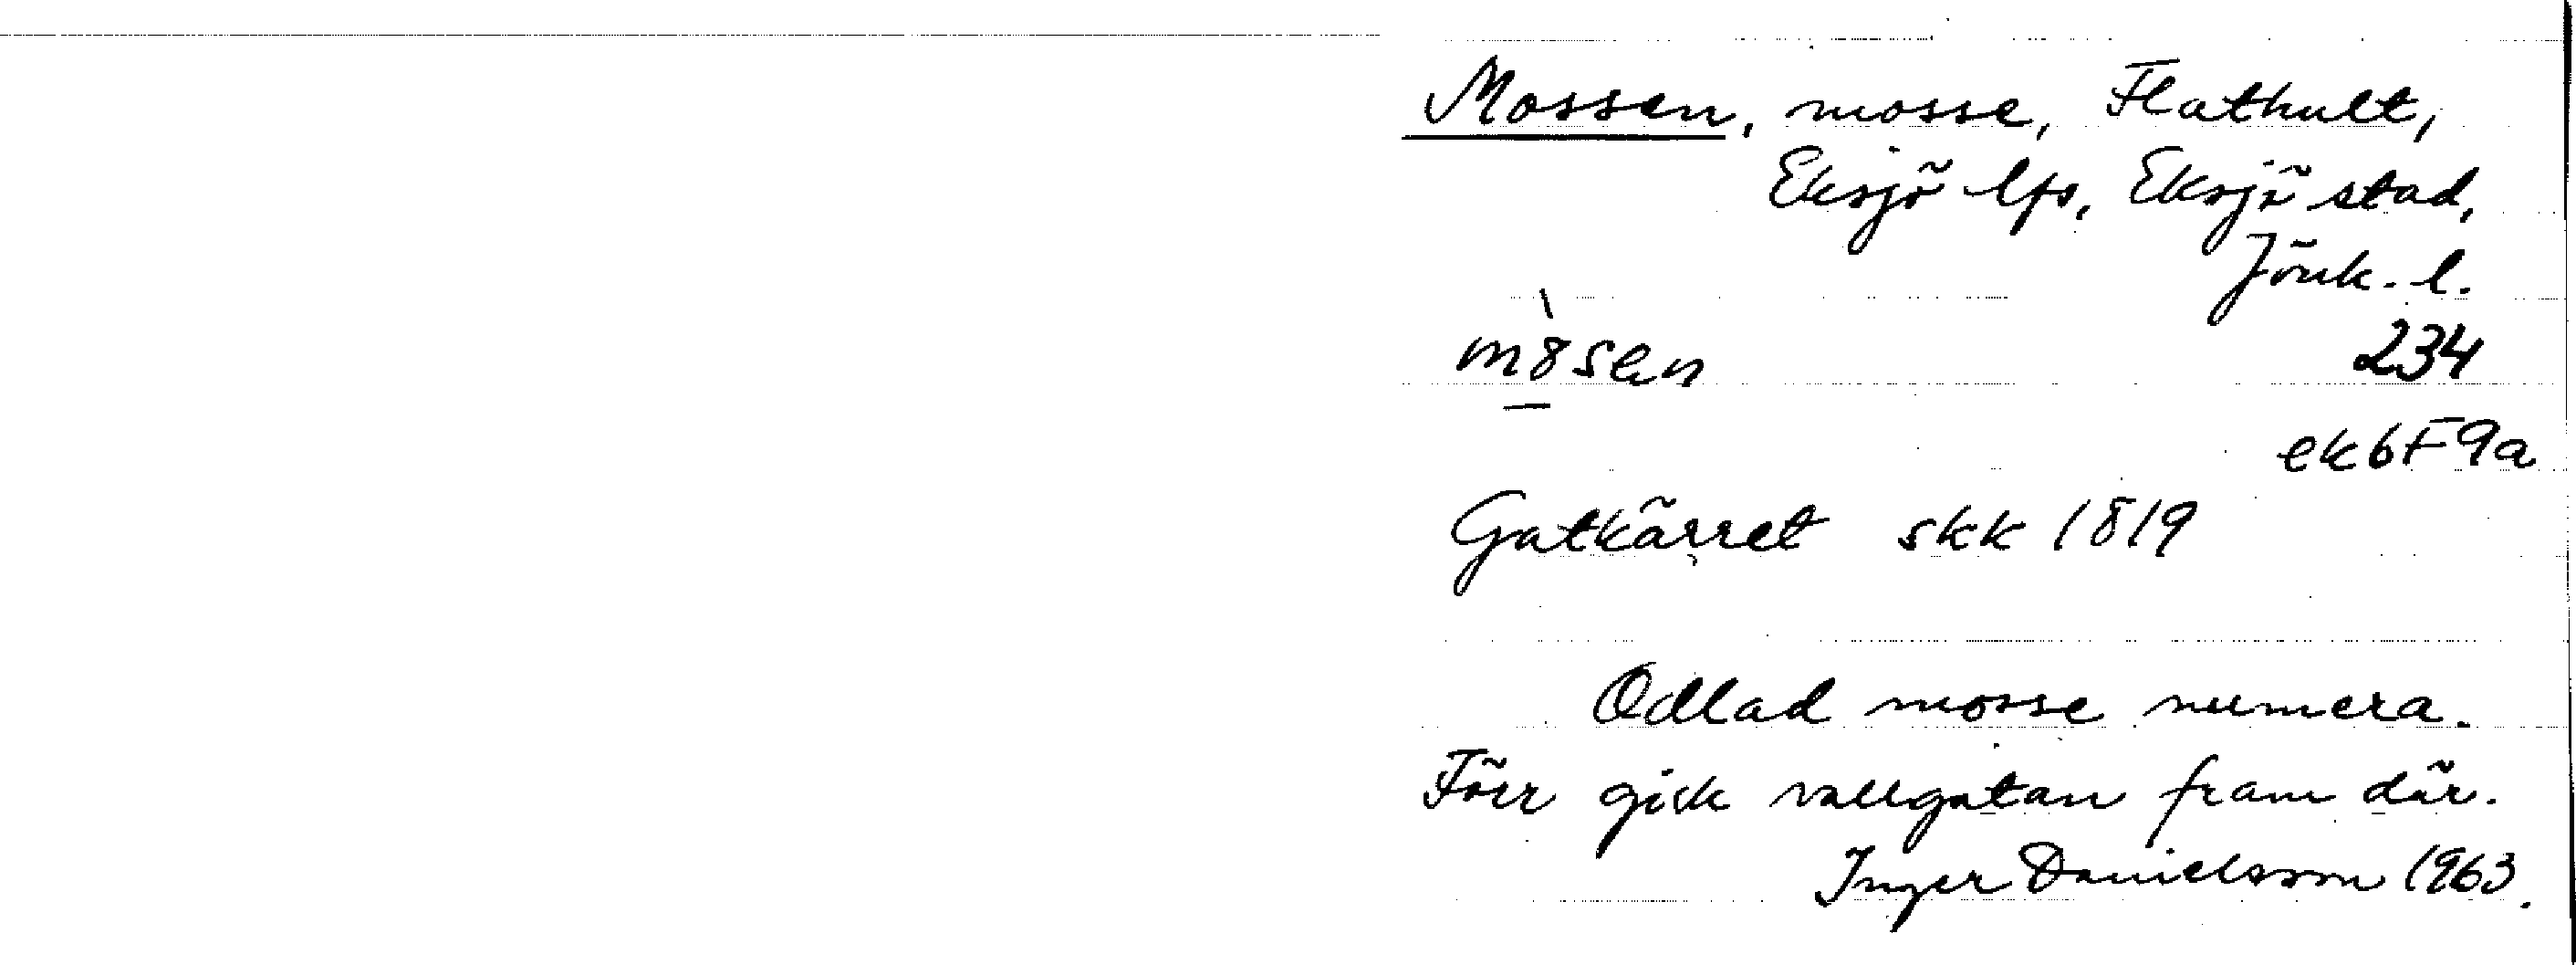 Mossen, mosse, Flathult,
Eksjö lfs, Eksjö stad,
Jönk. l.
234
ek 6F9a
Gatkärret skk 1819
Odlad mosse numera.
Förr gick vallgatan fram där.
Inger Danielsson 1963.